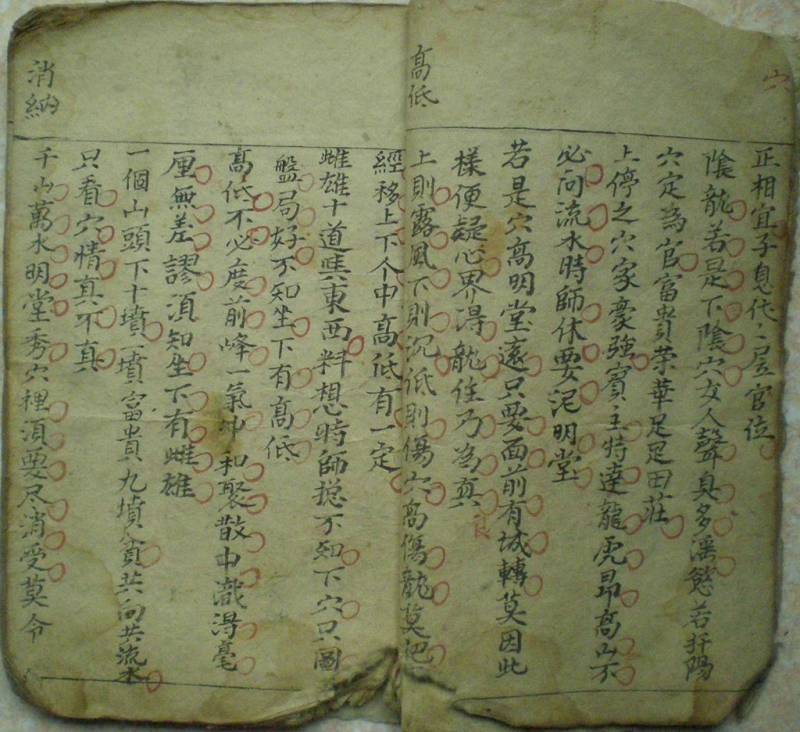 穴
正相宜子息代々居官位
陰龍若是下陰穴女人聲臭多滛慾若扦陽
穴定為官富貴荣華足足田莊
上停之穴家豪強賓主特達龍虎昂高山不
必问流水時師休要泥明堂
若是穴高明堂遠只要面前有城轉莫因此
樣便疑心界得龍住乃為真
高低
上則露風下則沉低則傷穴高傷龍莫把
經移上下个中高低有一定
雌雄十道與東西料想時師揔不知下穴只圖
盤局好不知坐下有高低
高低不必度前峰一氣冲和聚散中識得毫
厘無差謬須知坐下有雌雄
一個山頭下十墳一墳富貴九墳貧共向共流水
只看穴情真不真
消納
千山萬水明堂秀穴裡須要尺消受莫令